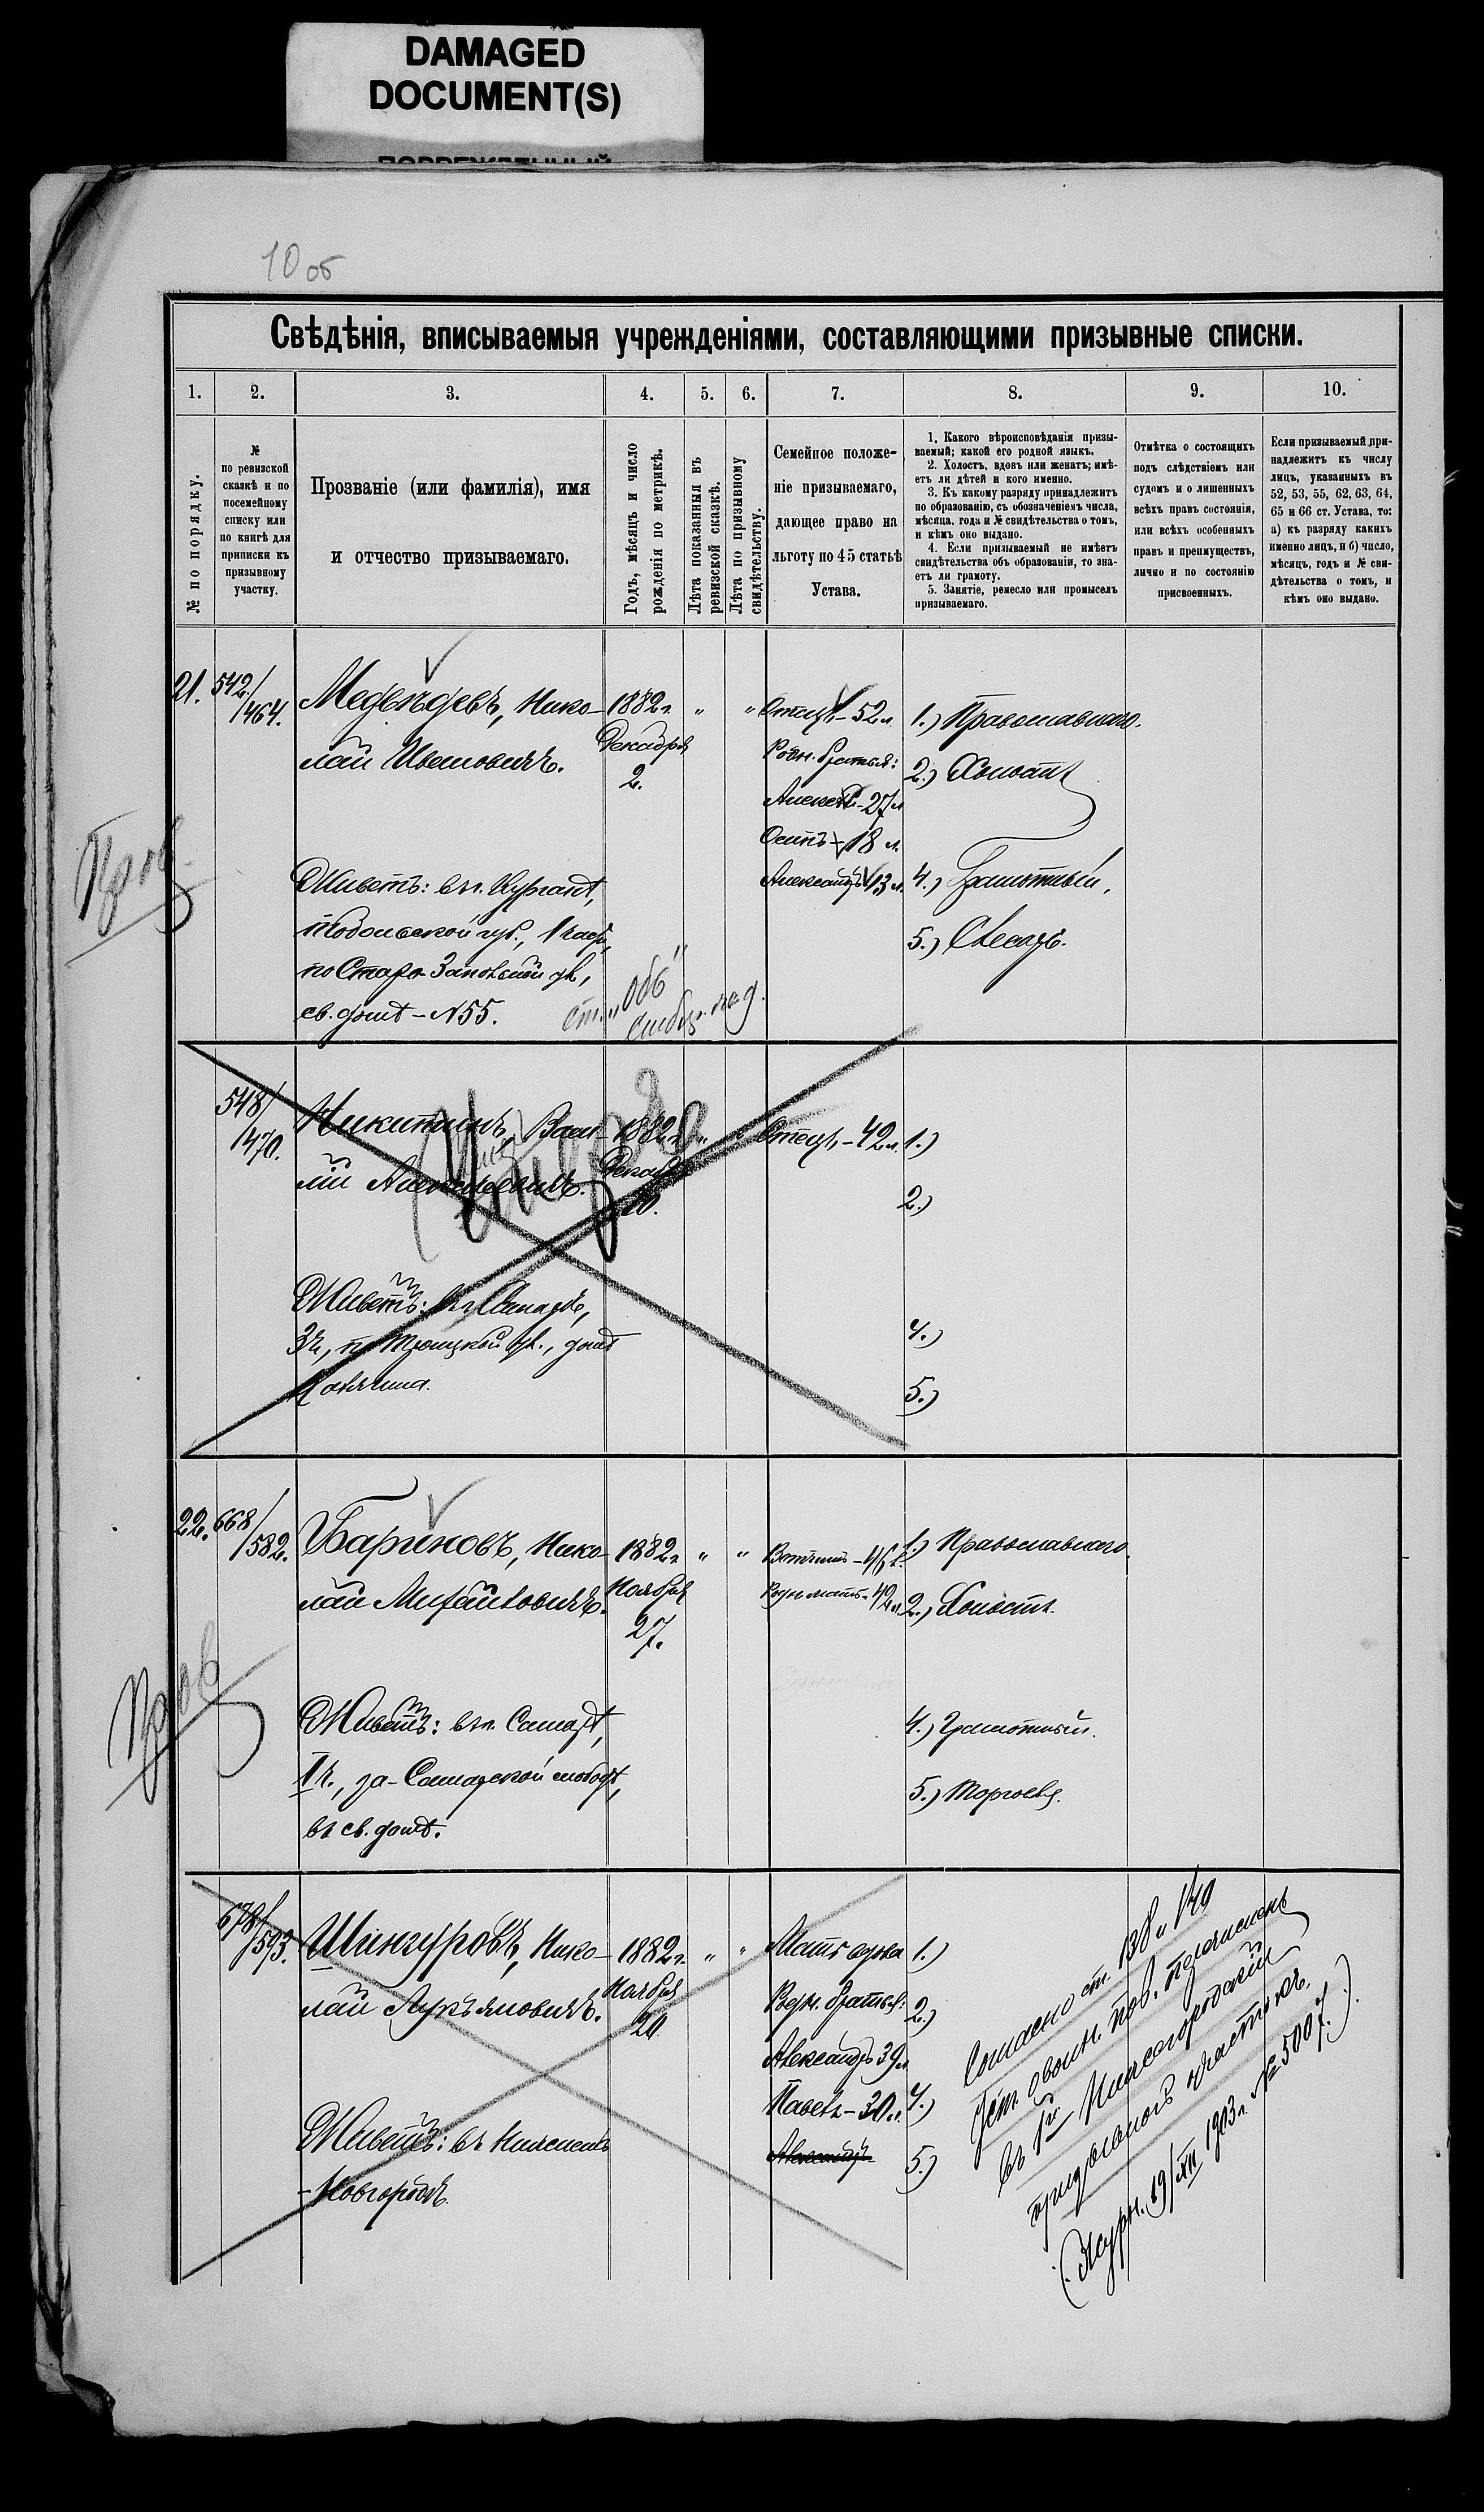 DAMAGED
DOCUMENT(S)
10 об
Свѣдѣнія, вписываемыя учрежденіями, составляющими призывные списки.
1. 2. 3. 4. 5. 6. 7. 8. 9. 10.
№ по порядку.
№
по ревизской
сказкѣ и по
посемейному
списку или
по книгѣ для
приписки къ
призывному
участку.
Прозваніе (или фамилія), имя
и отчество призываемаго.
Годъ, мѣсяцъ и число
рожденія по метрикѣ.
Лѣта показанныя въ
ревизской сказкѣ.
Лѣта по призывному
свидѣтельству.
Семейное положе-
ніе призываемаго,
дающее право на
льготу по 45 статьѣ
Устава.
1. Какого вѣроисповѣданія призы-
ваемый; какой его родной языкъ.
2. Холостъ, вдовъ или женатъ; имѣ-
етъ ли дѣтей и кого именно.
3. Къ какому разряду принадлежитъ
по образованію, съ обозначеніемъ числа,
мѣсяца, года и № свидѣтельства о томъ,
и кѣмъ оно выдано.
4. Если призываемый не имѣетъ
свидѣтельства объ образованіи, то зна-
етъ ли грамоту.
5. Занятіе, ремесло или промыселъ
призываемаго.
Отмѣтка о состоящихъ
подъ слѣдствіемъ или
судомъ и о лишенныхъ
всѣхъ правъ состоянія,
или всѣхъ особенныхъ
правъ и преимуществъ,
лично и по состоянію
присвоенныхъ.
Если призываемый при-
надлежитъ къ числу
лицъ, указанныхъ въ
52, 53, 55, 62, 63, 64,
65 и 66 ст. Устава, то:
а) къ разряду какихъ
именно лицъ, и б) число,
мѣсяцъ, годъ и № сви-
дѣтельства о томъ, и
кѣмъ оно выдано.
21. 542/464.
Медвѣдевъ, Нико-
лай Ивановичъ.
Живетъ: въ г. Курганѣ,
Тобольской губ., 1 части,
св. домѣ - №55.
ст. „Обь"
1882 г.
Декабря
2.
" "
Отецъ - 52 л.
Родн. братья:
Алексѣй - 27 л.
Осипъ - 18 л.
Александръ 13 л.
1.) Православнаго.
2.) Холостъ
4.) Грамотный.
5.) Слесарь.
548/470.
Никитинъ, Васи-
лій
Живетъ: въ г. Самарѣ,
3 ч., по Троицкой ул., домъ
1882 г.
Декабря
10.
" "
Отецъ - 42 л.
1.)
2.)
4.)
5.)
22. 668/582.
Бариновъ, Нико-
лай Михайловичъ.
Живетъ: въ г. Самарѣ,
1 ч., за-Самарской слободѣ,
въ св. домѣ.
1882 г.
Ноября
27.
" "
Вотчимъ - 46 л.
Родн. мать - 42 л.
1.) Православнаго.
2.) Холостъ.
4.) Грамотный.
5.) Торговля.
678/593.
Шингуровъ, Нико-
лай Лукьяновичъ.
Живетъ: въ Нижнемъ
-Новгородѣ.
1882 г.
Ноября
20
" "
Мать вдова
Родн. братья:
Александръ 39 л.
Павелъ - 30 л.
Александръ
1.)
2.)
4.)
5.)
Согласно ст. 138 и 140
Уст. о воин. пов. перечисленъ
въ 1й Нижегородскій
призывной участокъ.
(Журн. 19/XII 1903 г. № 5007.)